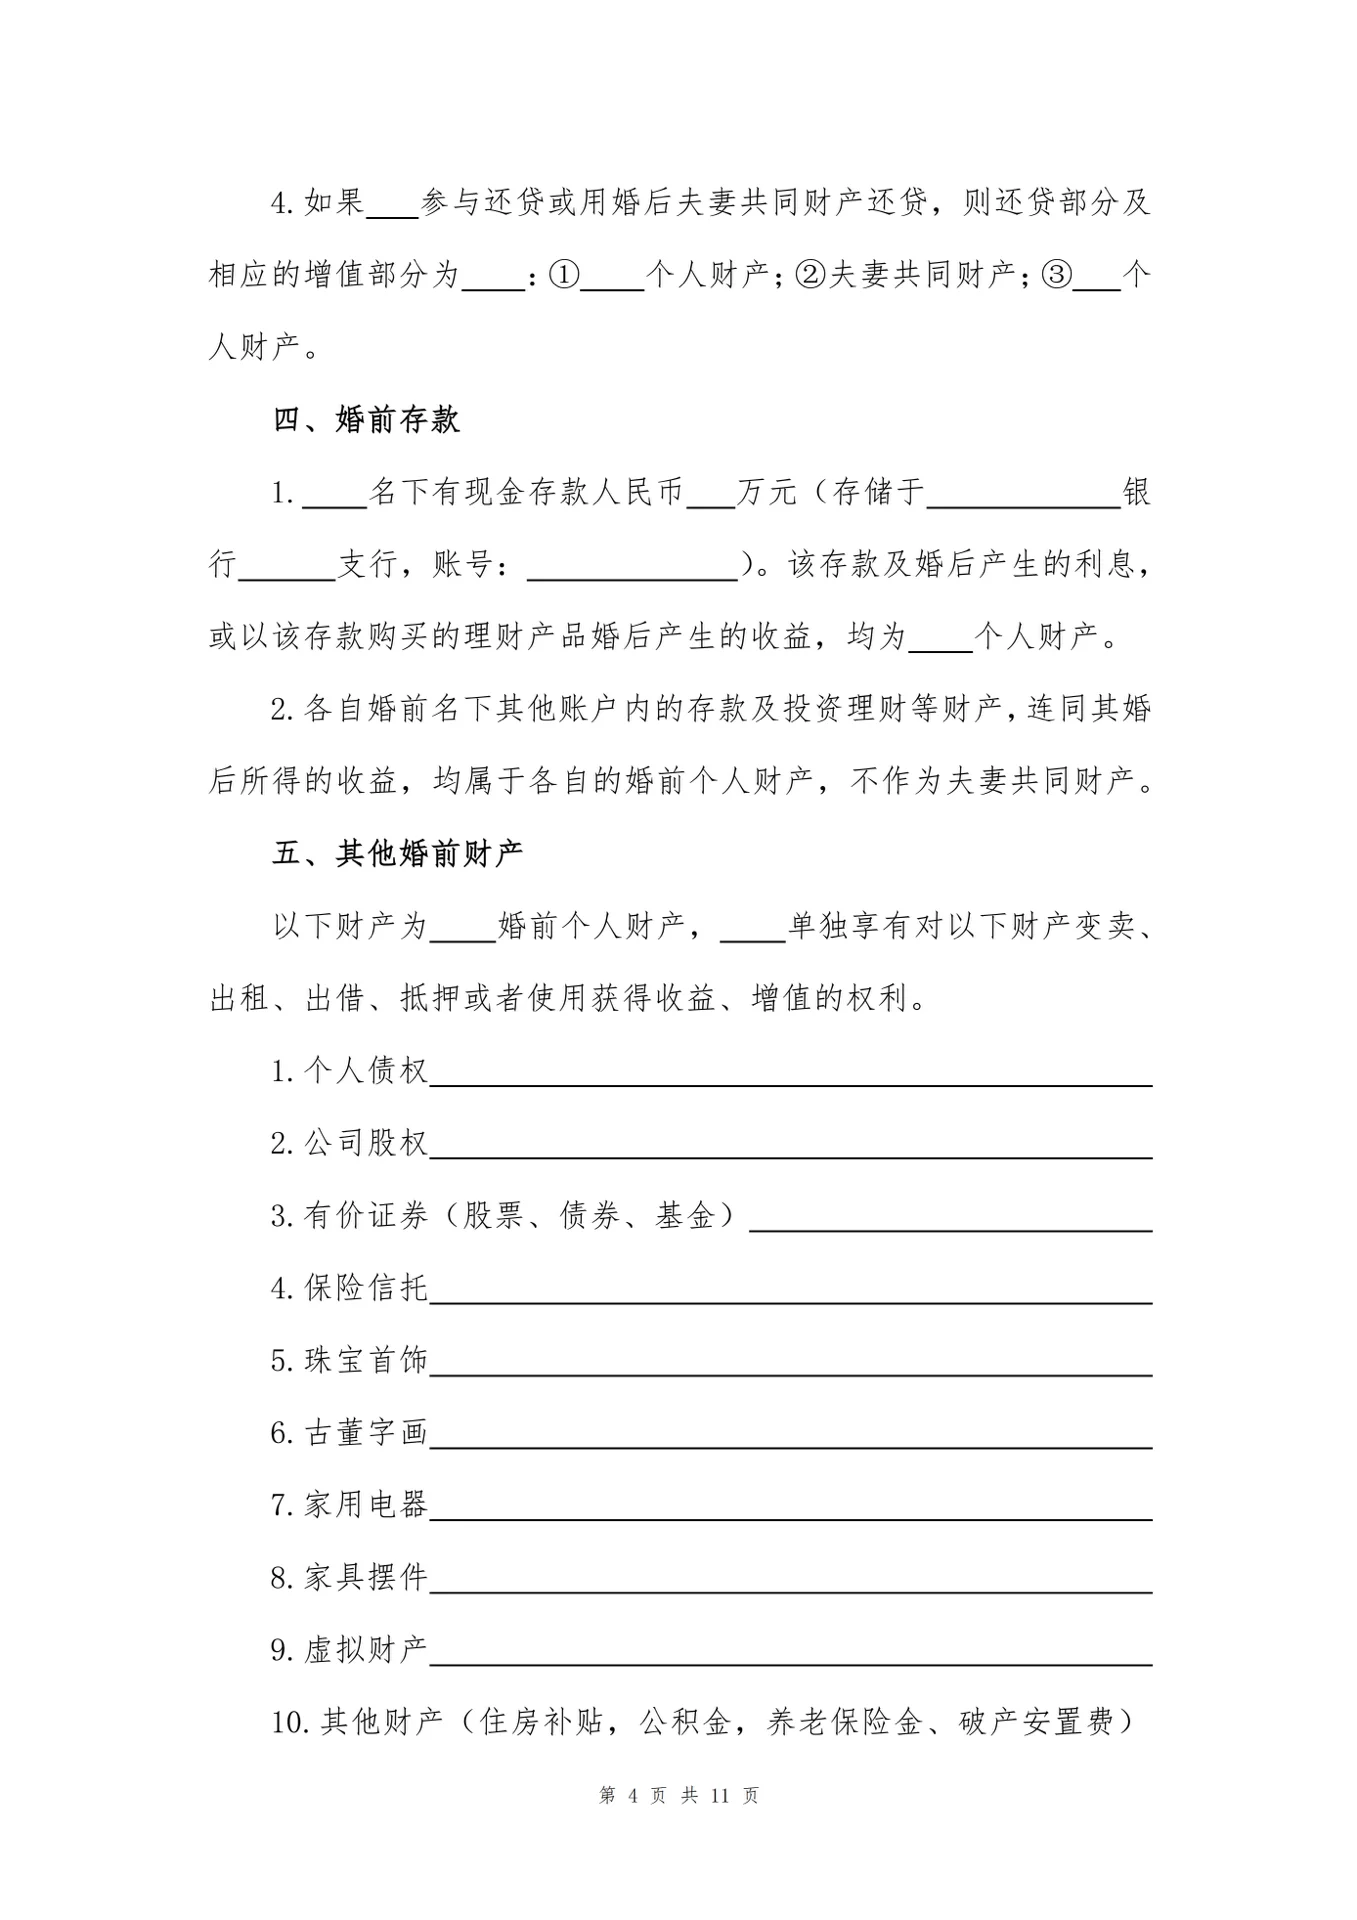 4.如果___参与还贷或用婚后夫妻共同财产还贷，则还贷部分及
相应的增值部分为____：①____个人财产；②夫妻共同财产；③___个
人财产。
四、婚前存款
1.____名下有现金存款人民币___万元（存储于____________银
行______支行，账号：_____________）。该存款及婚后产生的利息，
或以该存款购买的理财产品婚后产生的收益，均为____个人财产。
2.各自婚前名下其他账户内的存款及投资理财等财产，连同其婚
后所得的收益，均属于各自的婚前个人财产，不作为夫妻共同财产。
五、其他婚前财产
以下财产为____婚前个人财产，____单独享有对以下财产变卖、
出租、出借、抵押或者使用获得收益、增值的权利。
1.个人债权_____________________________________________
2.公司股权_____________________________________________
3.有价证券（股票、债券、基金）_________________________
4.保险信托_____________________________________________
5.珠宝首饰_____________________________________________
6.古董字画_____________________________________________
7.家用电器_____________________________________________
8.家具摆件_____________________________________________
9.虚拟财产_____________________________________________
10.其他财产（住房补贴，公积金，养老保险金、破产安置费）
第 4 页 共 11 页